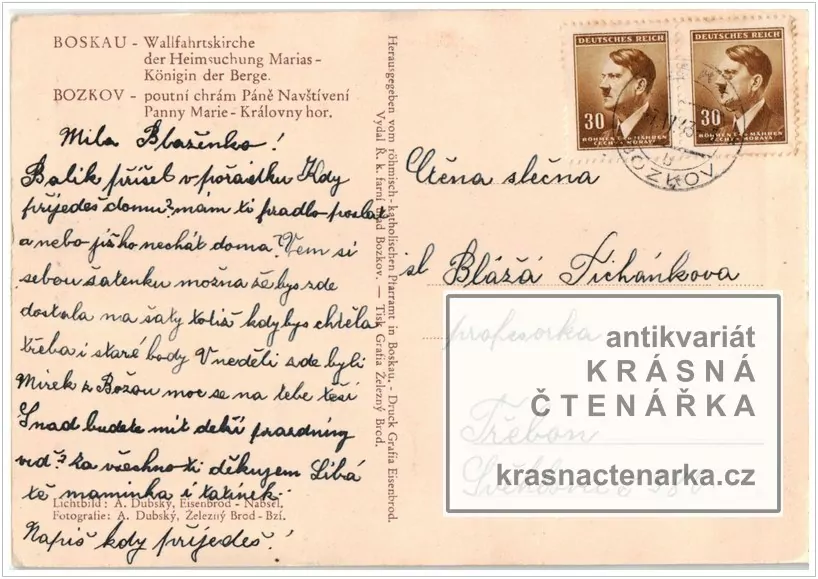 BOSKAU - Wallfahrtskirche
der Heimsuchung Marias-
Königin der Berge.
BOZKOV - poutní chrám Páně Navštívení
Panny Marie-Královny hor.
Milá Blaženko!
Balik přišel v pořádku Kdy
přijedeš domu? mám ti pradlo poslat
a nebo jiš ho nechát doma? Vem si
sebou šatenku možna že bys zde
dostala na šaty totiš kdy bys chtěla
třeba i staré body V neděli zde byli
Mirek z Božou moc se na tebe těší
Snad budete mit dekší prazdniny
viď? Za všechno ti děkujem Libá
tě maminka i tatínek.
Lichtbild: A. Dubský, Eisenbrod - Nabsel.
Fotografie: A. Dubský, Železný Brod - Bzí.
Napiš kdy přijedeš!
Herausgegeben vom römisch-katholischen Pfarramt in Boskau. - Druck Grafia Eisenbrod.
Vydal Ř. k. farní úřad Bozkov. — Tisk Grafia Železný Brod.
DEUTSCHES REICH
30
BÖHMEN u. MÄHREN
ČECHY a MORAVA
DEUTSCHES REICH
30
BÖHMEN u. MÄHREN
ČECHY a MORAVA
BOZKOV
b
Ctěna slečna
sl Blážá Tichánkova
profesorka
Třeboň
antikvariát
KRÁSNÁ
ČTENÁŘKA
krasnactenarka.cz